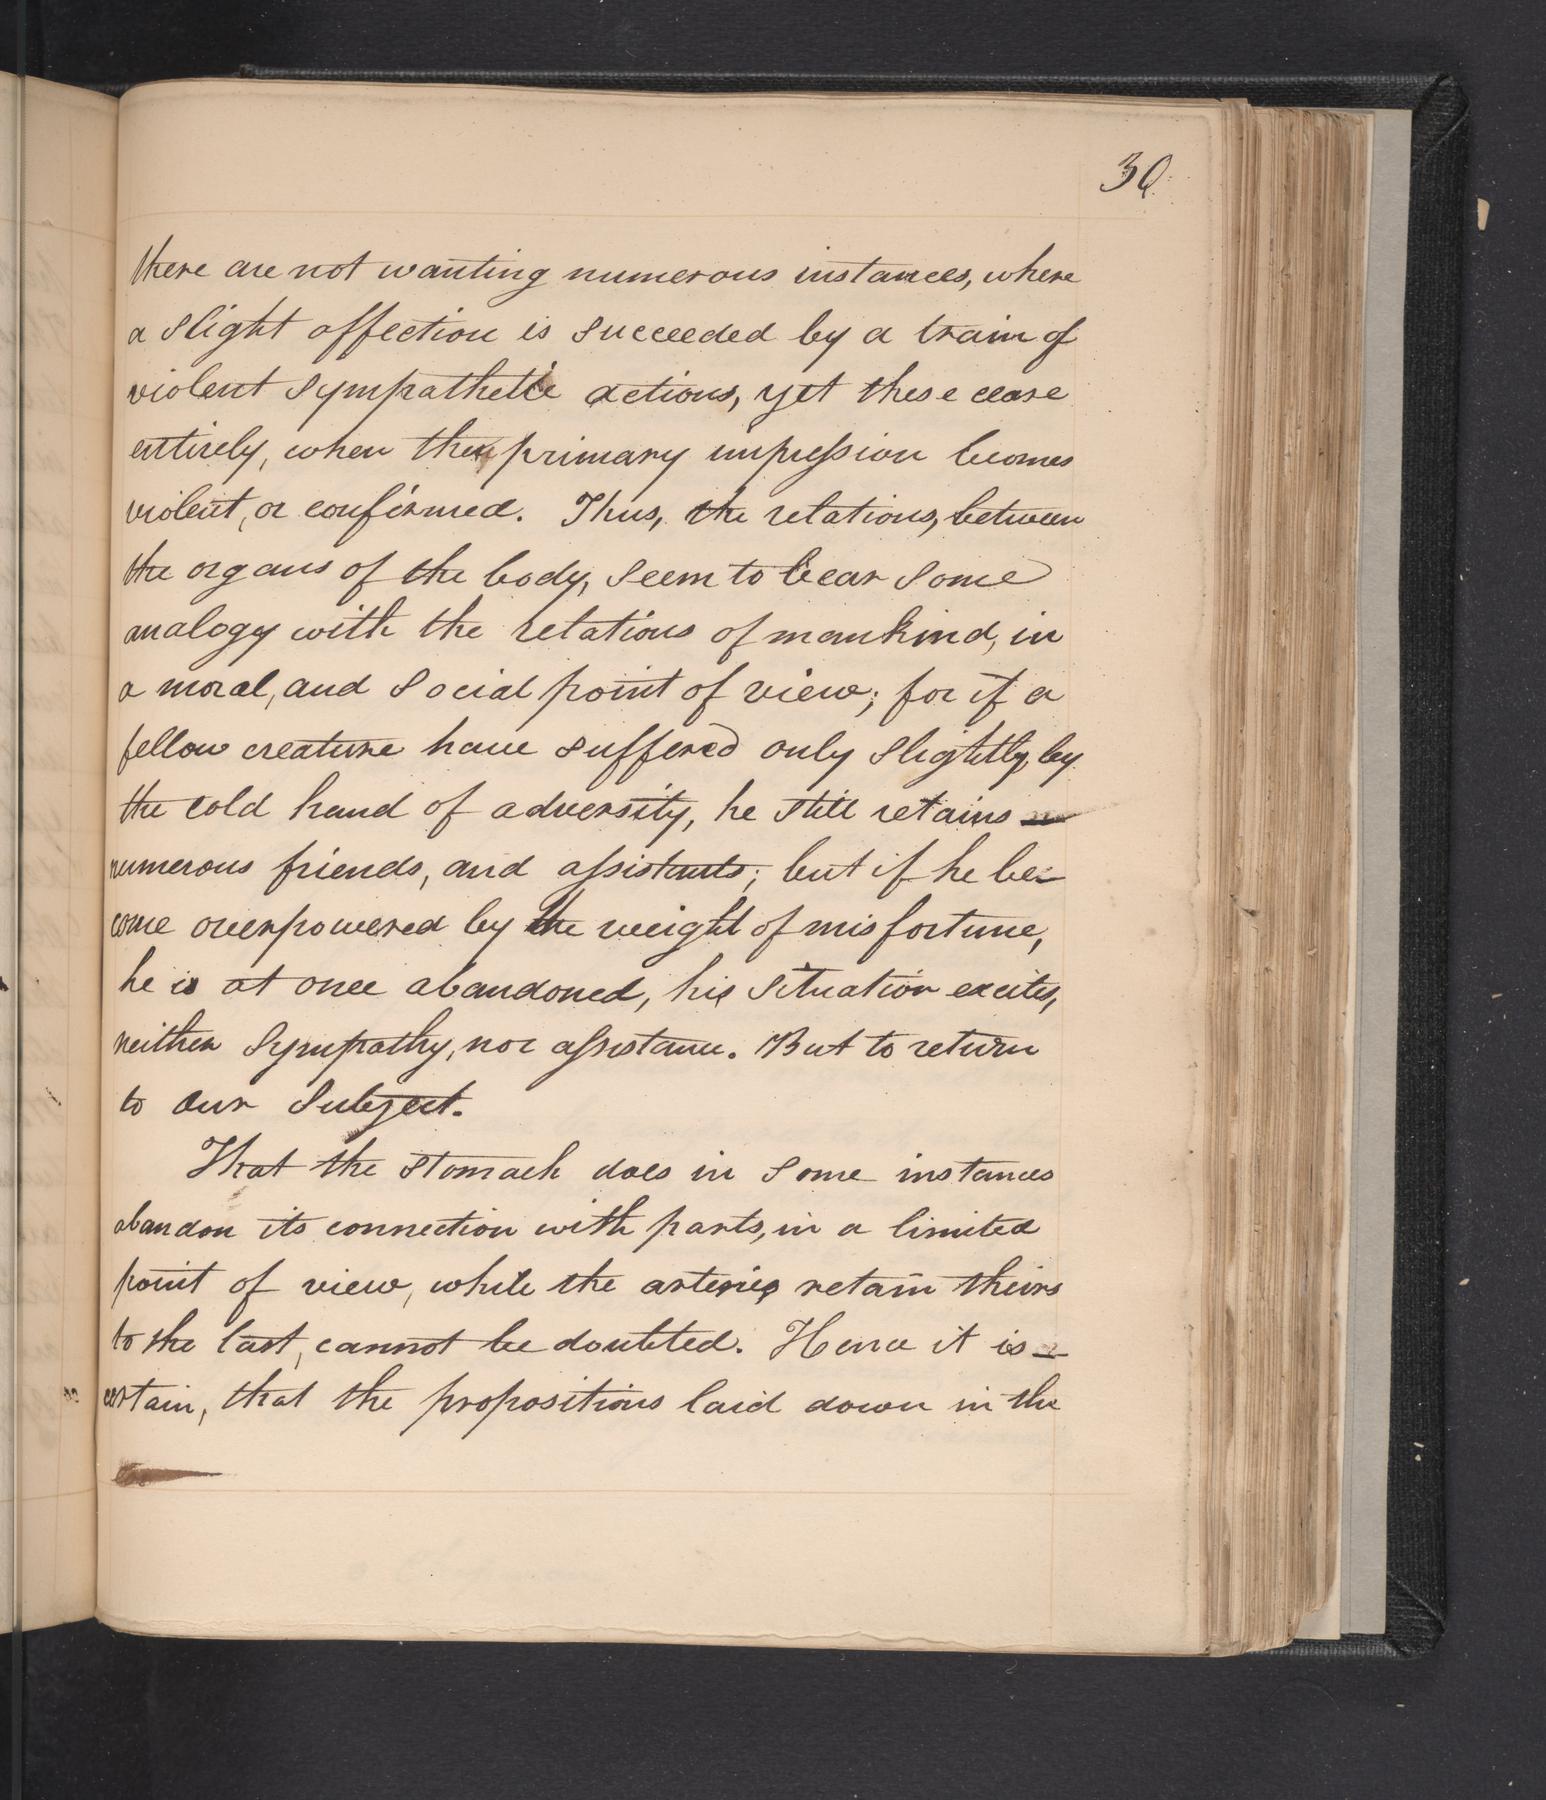 30
there are not wanting numerous instances, where
a slight affection is succeeded by a train of
violent sympathetic actions, yet these cease
entirely, when the primary impression becomes
violent, or confirmed. Thus, the relations, between
the organs of the body, seem to bear some
analogy with the relations of mankind, in
a moral, and social point of view; for if a
fellow creature have suffered only slightly, by
the cold hand of adversity, he still retains
numerous friends, and assistants; but if he be-
come overpowered by the weight of misfortune,
he is at once abandoned, his situation excites,
neither sympathy, nor assistance. But to return
to our subject.
That the stomach does in some instances
abandon its connection with parts, in a limited
point of view, while the arteries retain theirs
to the last, cannot be doubted. Hence it is
certain, that the propositions laid down in the